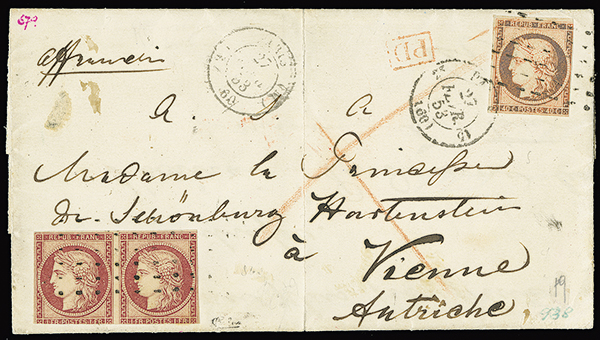 57a
affranchi
PD
27
53
(60)
REPUB. FRANC.
40 C. POSTES 40 C.
PARIS
27
AVR.
53
(60)
A
à
Madame la Princesse
de Schönburg Hartenstein
à Vienne
Autriche
REPUB. FRANC.
1 FR. POSTES 1 FR.
REPUB. FRANC.
1 FR. POSTES 1 FR.
19
938